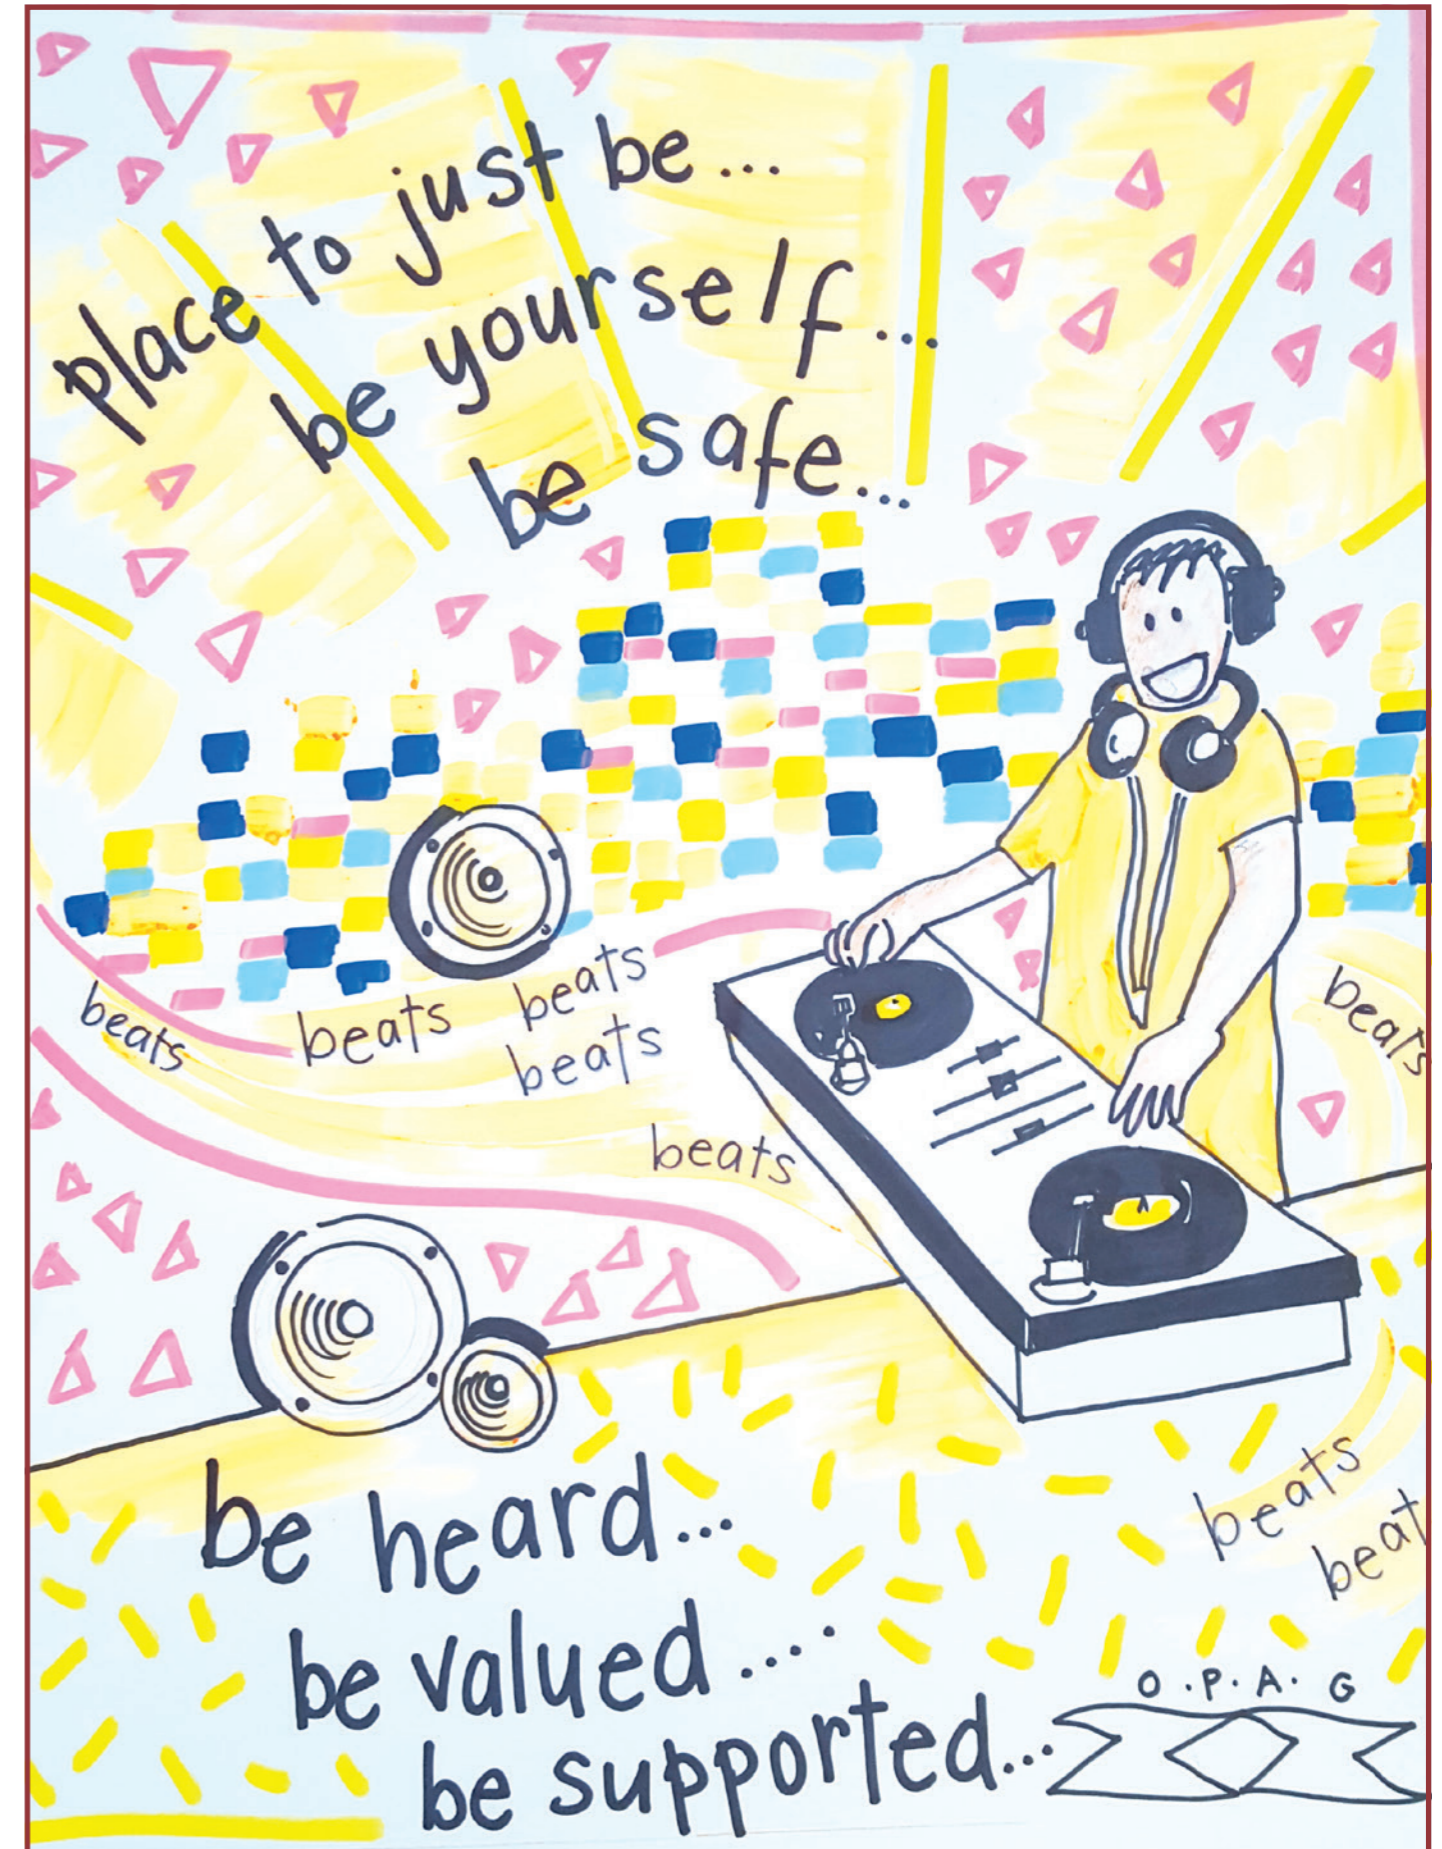 place to just be...
be yourself...
be safe...
beats
beats
beats
beats
beats
beats
be heard...
be valued....
be supported...
beats
beat
O.P.A.G